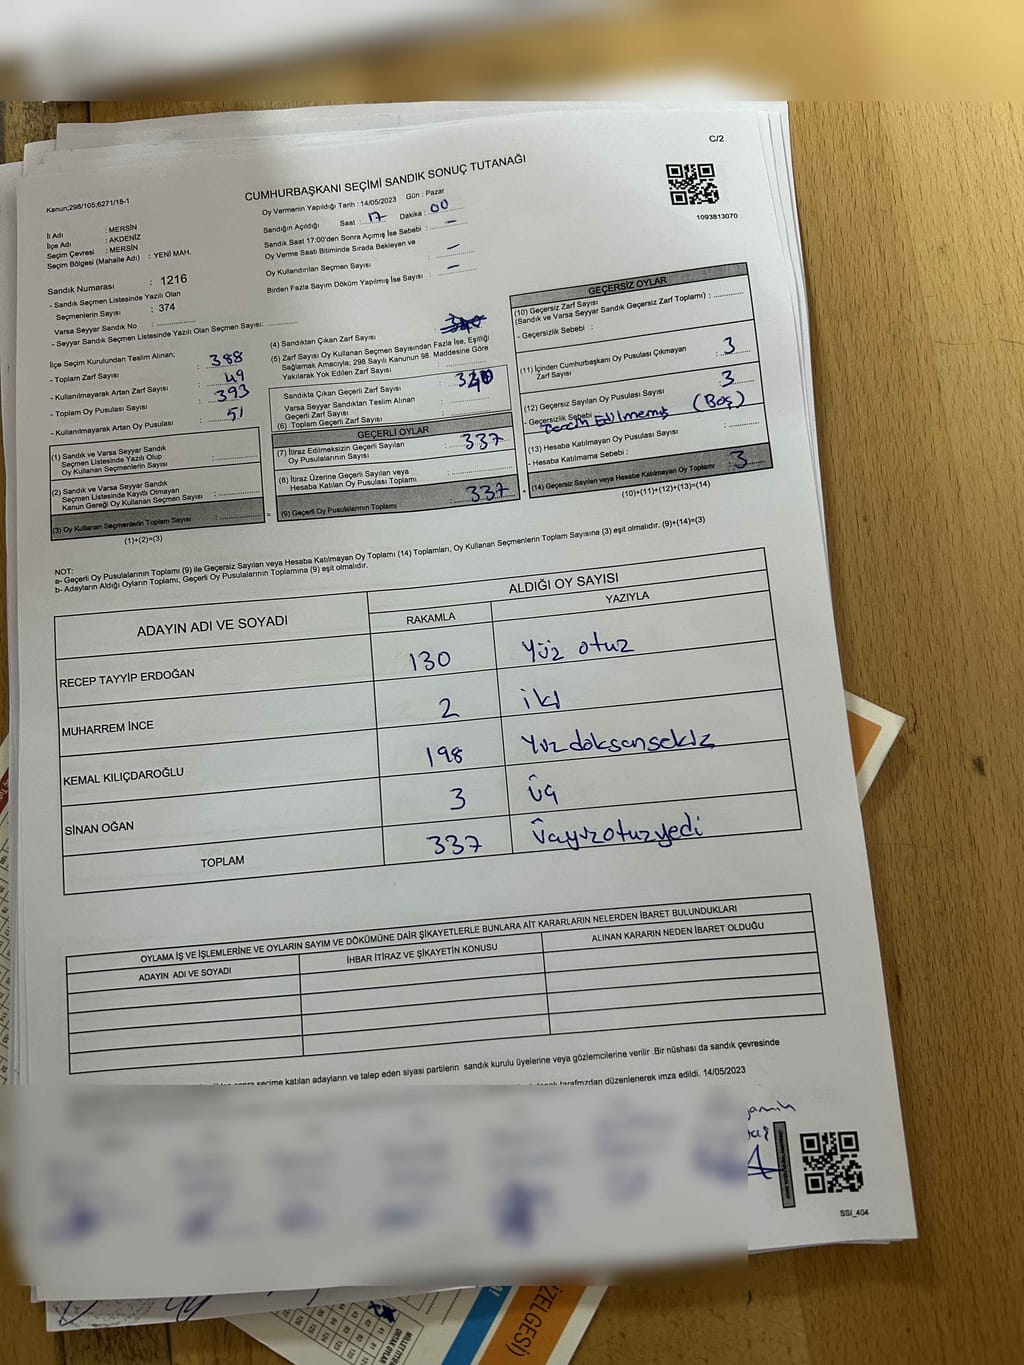 C/2
CUMHURBAŞKANI SEÇİMİ SANDIK SONUÇ TUTANAĞI
Kanun:298/105;6271/16-1
1093813070
Oy Vermenin Yapıldığı Tarih : 14/05/2023 Gün : Pazar
Sandığın Açıldığı Saat : 17 Dakika : 00
Sandık Saat 17:00'den Sonra Açımış İse Sebebi : –
Oy Verme Saati Bitiminde Sırada Bekleyen ve
Oy Kullandırılan Seçmen Sayısı : –
Birden Fazla Sayım Döküm Yapılmış İse Sayısı : –
İl Adı : MERSİN
İlçe Adı : AKDENİZ
Seçim Çevresi : MERSİN
Seçim Bölgesi (Mahalle Adı) : YENİ MAH.
Sandık Numarası : 1216
- Sandık Seçmen Listesinde Yazılı Olan
Seçmenlerin Sayısı : 374
Varsa Seyyar Sandık No :
- Seyyar Sandık Seçmen Listesinde Yazılı Olan Seçmen Sayısı:
İlçe Seçim Kurulundan Teslim Alınan;
- Toplam Zarf Sayısı : 388
- Kullanılmayarak Artan Zarf Sayısı : 49
- Toplam Oy Pusulası Sayısı : 393
- Kullanılmayarak Artan Oy Pusulası : 51
(1) Sandık ve Varsa Seyyar Sandık
Seçmen Listesinde Yazılı Olup
Oy Kullanan Seçmenlerin Sayısı :
(2) Sandık ve Varsa Seyyar Sandık
Seçmen Listesinde Kayıtlı Olmayan
Kanun Gereği Oy Kullanan Seçmen Sayısı :
(3) Oy Kullanan Seçmenlerin Toplam Sayısı :
(1)+(2)=(3)
(4) Sandıktan Çıkan Zarf Sayısı :
(5) Zarf Sayısı Oy Kullanan Seçmen Sayısından Fazla İse, Eşitliği
Sağlamak Amacıyla; 298 Sayılı Kanunun 98. Maddesine Göre
Yakılarak Yok Edilen Zarf Sayısı :
Sandıkta Çıkan Geçerli Zarf Sayısı : 340
Varsa Seyyar Sandıktan Teslim Alınan
Geçerli Zarf Sayısı :
(6) Toplam Geçerli Zarf Sayısı :
GEÇERLİ OYLAR
(7) İtiraz Edilmeksizin Geçerli Sayılan
Oy Pusulalarının Sayısı : 337
(8) İtiraz Üzerine Geçerli Sayılan veya
Hesaba Katılan Oy Pusulası Toplamı :
(9) Geçerli Oy Pusulalarının Toplamı : 337
GEÇERSİZ OYLAR
(10) Geçersiz Zarf Sayısı
(Sandık ve Varsa Seyyar Sandık Geçersiz Zarf Toplamı) :
- Geçersizlik Sebebi :
(11) İçinden Cumhurbaşkanı Oy Pusulası Çıkmayan
Zarf Sayısı : 3
(12) Geçersiz Sayılan Oy Pusulası Sayısı : 3
- Geçersizlik Sebebi : Tercih Edilmemiş (Boş)
(13) Hesaba Katılmayan Oy Pusulası Sayısı :
- Hesaba Katılmama Sebebi :
(14) Geçersiz Sayılan veya Hesaba Katılmayan Oy Toplamı : 3
(10)+(11)+(12)+(13)=(14)
NOT:
a- Geçerli Oy Pusulalarının Toplamı (9) ile Geçersiz Sayılan veya Hesaba Katılmayan Oy Toplamı (14) Toplamları, Oy Kullanan Seçmenlerin Toplam Sayısına (3) eşit olmalıdır. (9)+(14)=(3)
b- Adayların Aldığı Oyların Toplamı, Geçerli Oy Pusulalarının Toplamına (9) eşit olmalıdır.
ADAYIN ADI VE SOYADI
ALDIĞI OY SAYISI
RAKAMLA YAZIYLA
RECEP TAYYİP ERDOĞAN 130 Yüz otuz
MUHARREM İNCE 2 iki
KEMAL KILIÇDAROĞLU 198 Yüzdoksansekiz
SİNAN OĞAN 3 üç
TOPLAM 337 üçyüzotuzyedi
OYLAMA İŞ VE İŞLEMLERİNE VE OYLARIN SAYIM VE DÖKÜMÜNE DAİR ŞİKAYETLERLE BUNLARA AİT KARARLARIN NELERDEN İBARET BULUNDUKLARI
ADAYIN ADI VE SOYADI İHBAR İTİRAZ VE ŞİKAYETİN KONUSU ALINAN KARARIN NEDEN İBARET OLDUĞU
seçime katılan adayların ve talep eden siyasi partilerin sandık kurulu üyelerine veya gözlemcilerine verilir .Bir nüshası da sandık çevresinde
tarafımızdan düzenlenerek imza edildi. 14/05/2023
SSI_404
İZELGESİ)